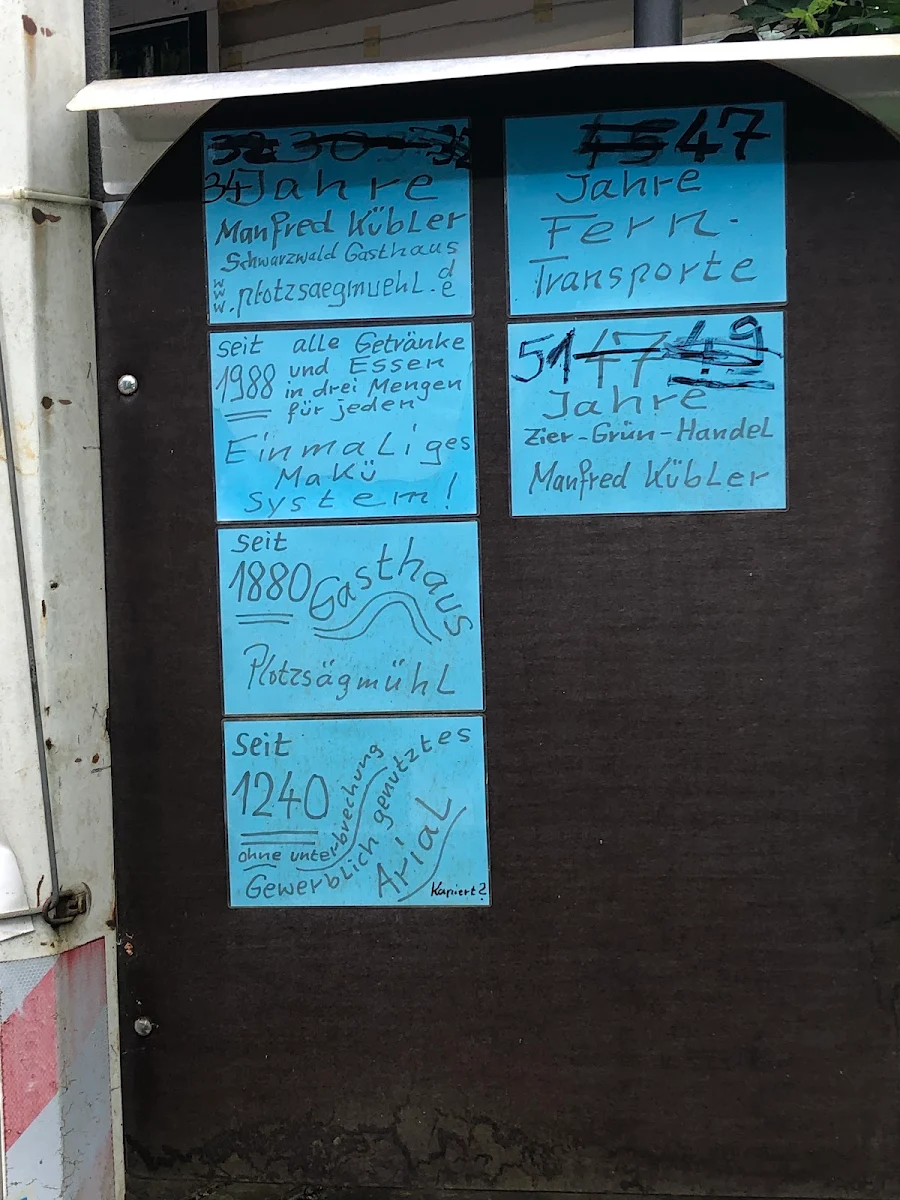 32 30 32
34 Jahre
Manfred Kübler
Schwarzwald Gasthaus
www.plotzsaegmuehl.de
seit 1988 alle Getränke
und Essen
in drei Mengen
für jeden
Einmaliges
MaKü
System!
seit
1880 Gasthaus
Plotzsägmühl
seit
1240
ohne unterbrechung
Gewerblich genutztes
Arial
Kapiert?
45 47
Jahre
Fern-
Transporte
51 47 49
Jahre
Zier-Grün-Handel
Manfred Kübler